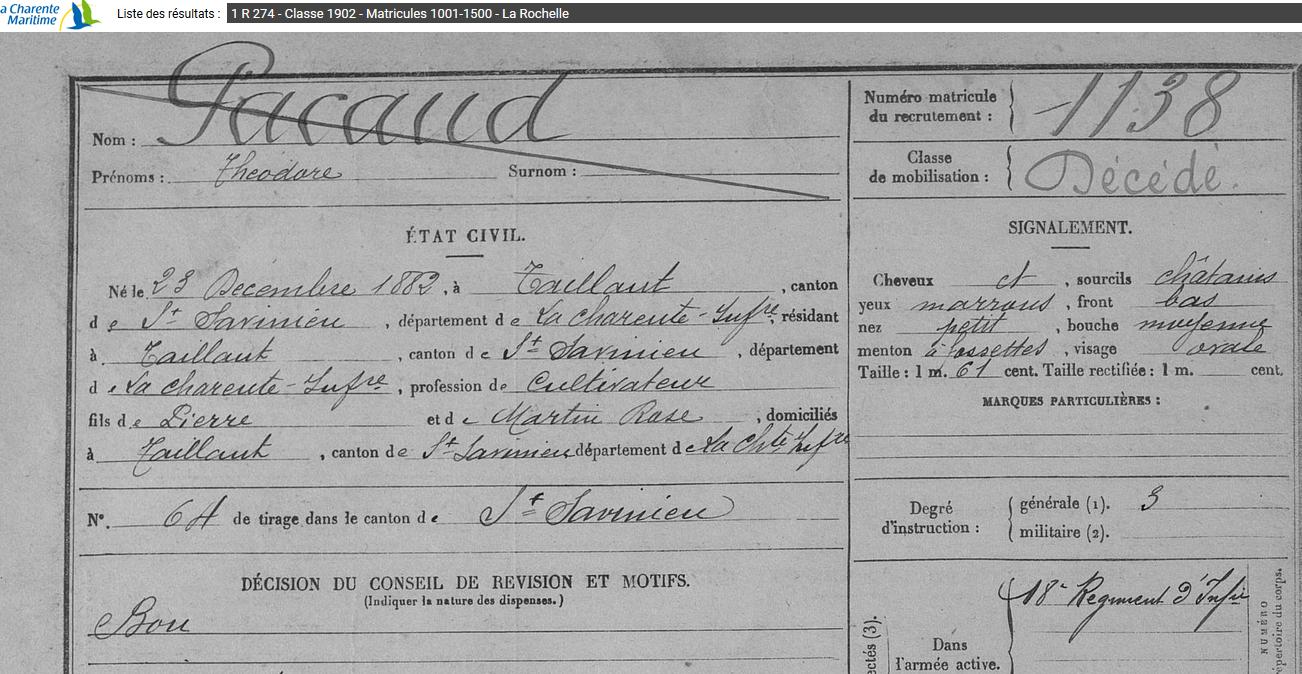 a Charente
Maritime
Liste des résultats : 1 R 274 - Classe 1902 - Matricules 1001-1500 - La Rochelle
Nom : Pacaud
Prénoms : Théodore Surnom :
Numéro matricule
du recrutement : 1138
Classe
de mobilisation : Décédé.
ÉTAT CIVIL.
Né le 23 Decembre 1882, à Taillant, canton
de St Savinien, département de La Charente-Infre, résidant
à Taillant, canton de St Savinien, département
de La Charente-Infre, profession de Cultivateur
fils de Pierre et de Martin Rose, domiciliés
à Taillant, canton de St Savinien département de La Chte Infre
N°. 64 de tirage dans le canton de St Savinien
DÉCISION DU CONSEIL DE REVISION ET MOTIFS.
(Indiquer la nature des dispenses.)
Bon
SIGNALEMENT.
Cheveux et, sourcils châtains
yeux marrons, front bas
nez petit, bouche moyenne
menton à fossettes, visage ovale
Taille : 1 m. 61 cent. Taille rectifiée : 1 m. cent.
MARQUES PARTICULIÈRES :
Degré
d'instruction :
générale (1). 3
militaire (2).
ectés (3).
Dans
l'armée active.
18e Regiment d'Infie
NUMÉRO
répertoire du corps.